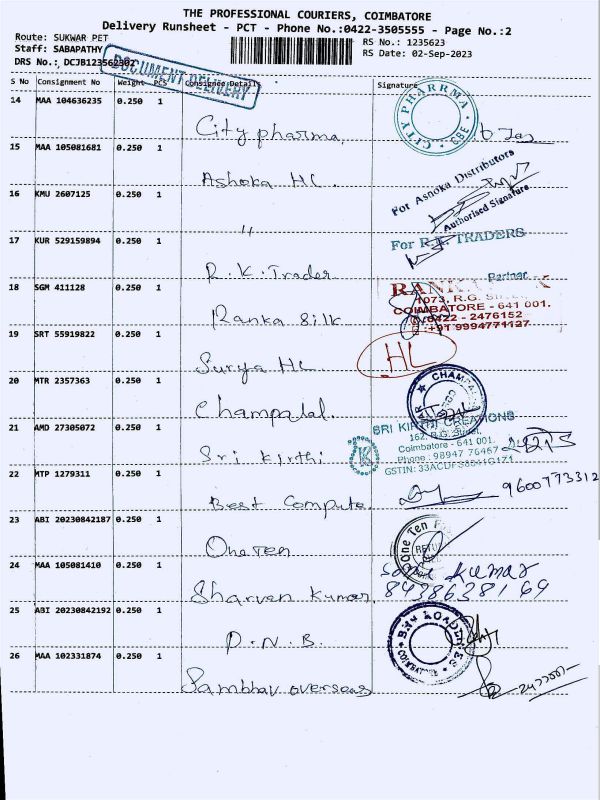 THE PROFESSIONAL COURIERS, COIMBATORE
Delivery Runsheet - PCT - Phone No.:0422-3505555 - Page No.:2
Route: SUKWAR PET
RS No.: 1235623
Staff: SABAPATHY
RS Date: 02-Sep-2023
DRS No.: DCJB123562302
DOCUMENT DELIVERY
S No Consignment No Weight PCS Consignee Details Signature
14 MAA 104636235 0.250 1
City pharma.
CITY PHARRMA CBE
15 MAA 105081681 0.250 1
Ashoka HL.
For Ashoka Distributors
Authorised Signature
16 KMU 2607125 0.250 1
"
17 KUR 529159894 0.250 1
R.K.Trader
For R.K. TRADERS
Partner
18 SGM 411128 0.250 1
Ranka Silk
1073, R.G.
COIMBATORE - 641 001.
0422 - 2476152
+91 9994771127
19 SRT 55919822 0.250 1
Surya HL
HL
20 MTR 2357363 0.250 1
Champalal.
21 AMD 27305072 0.250 1
Sri Kirthi
SRI KIRTHI CREATIONS
162, R.G. Street,
Coimbatore - 641 001.
Phone : 98947 76457
22 MTP 1279311 0.250 1
Best Compute.
9600773312
23 ABI 20230842187 0.250 1
One Ten
One Ten
24 MAA 105081410 0.250 1
Sharven Kumar.
Kumar
8438638169
25 ABI 20230842192 0.250 1
D.N.B.
26 MAA 102331874 0.250 1
Sambhav overseas